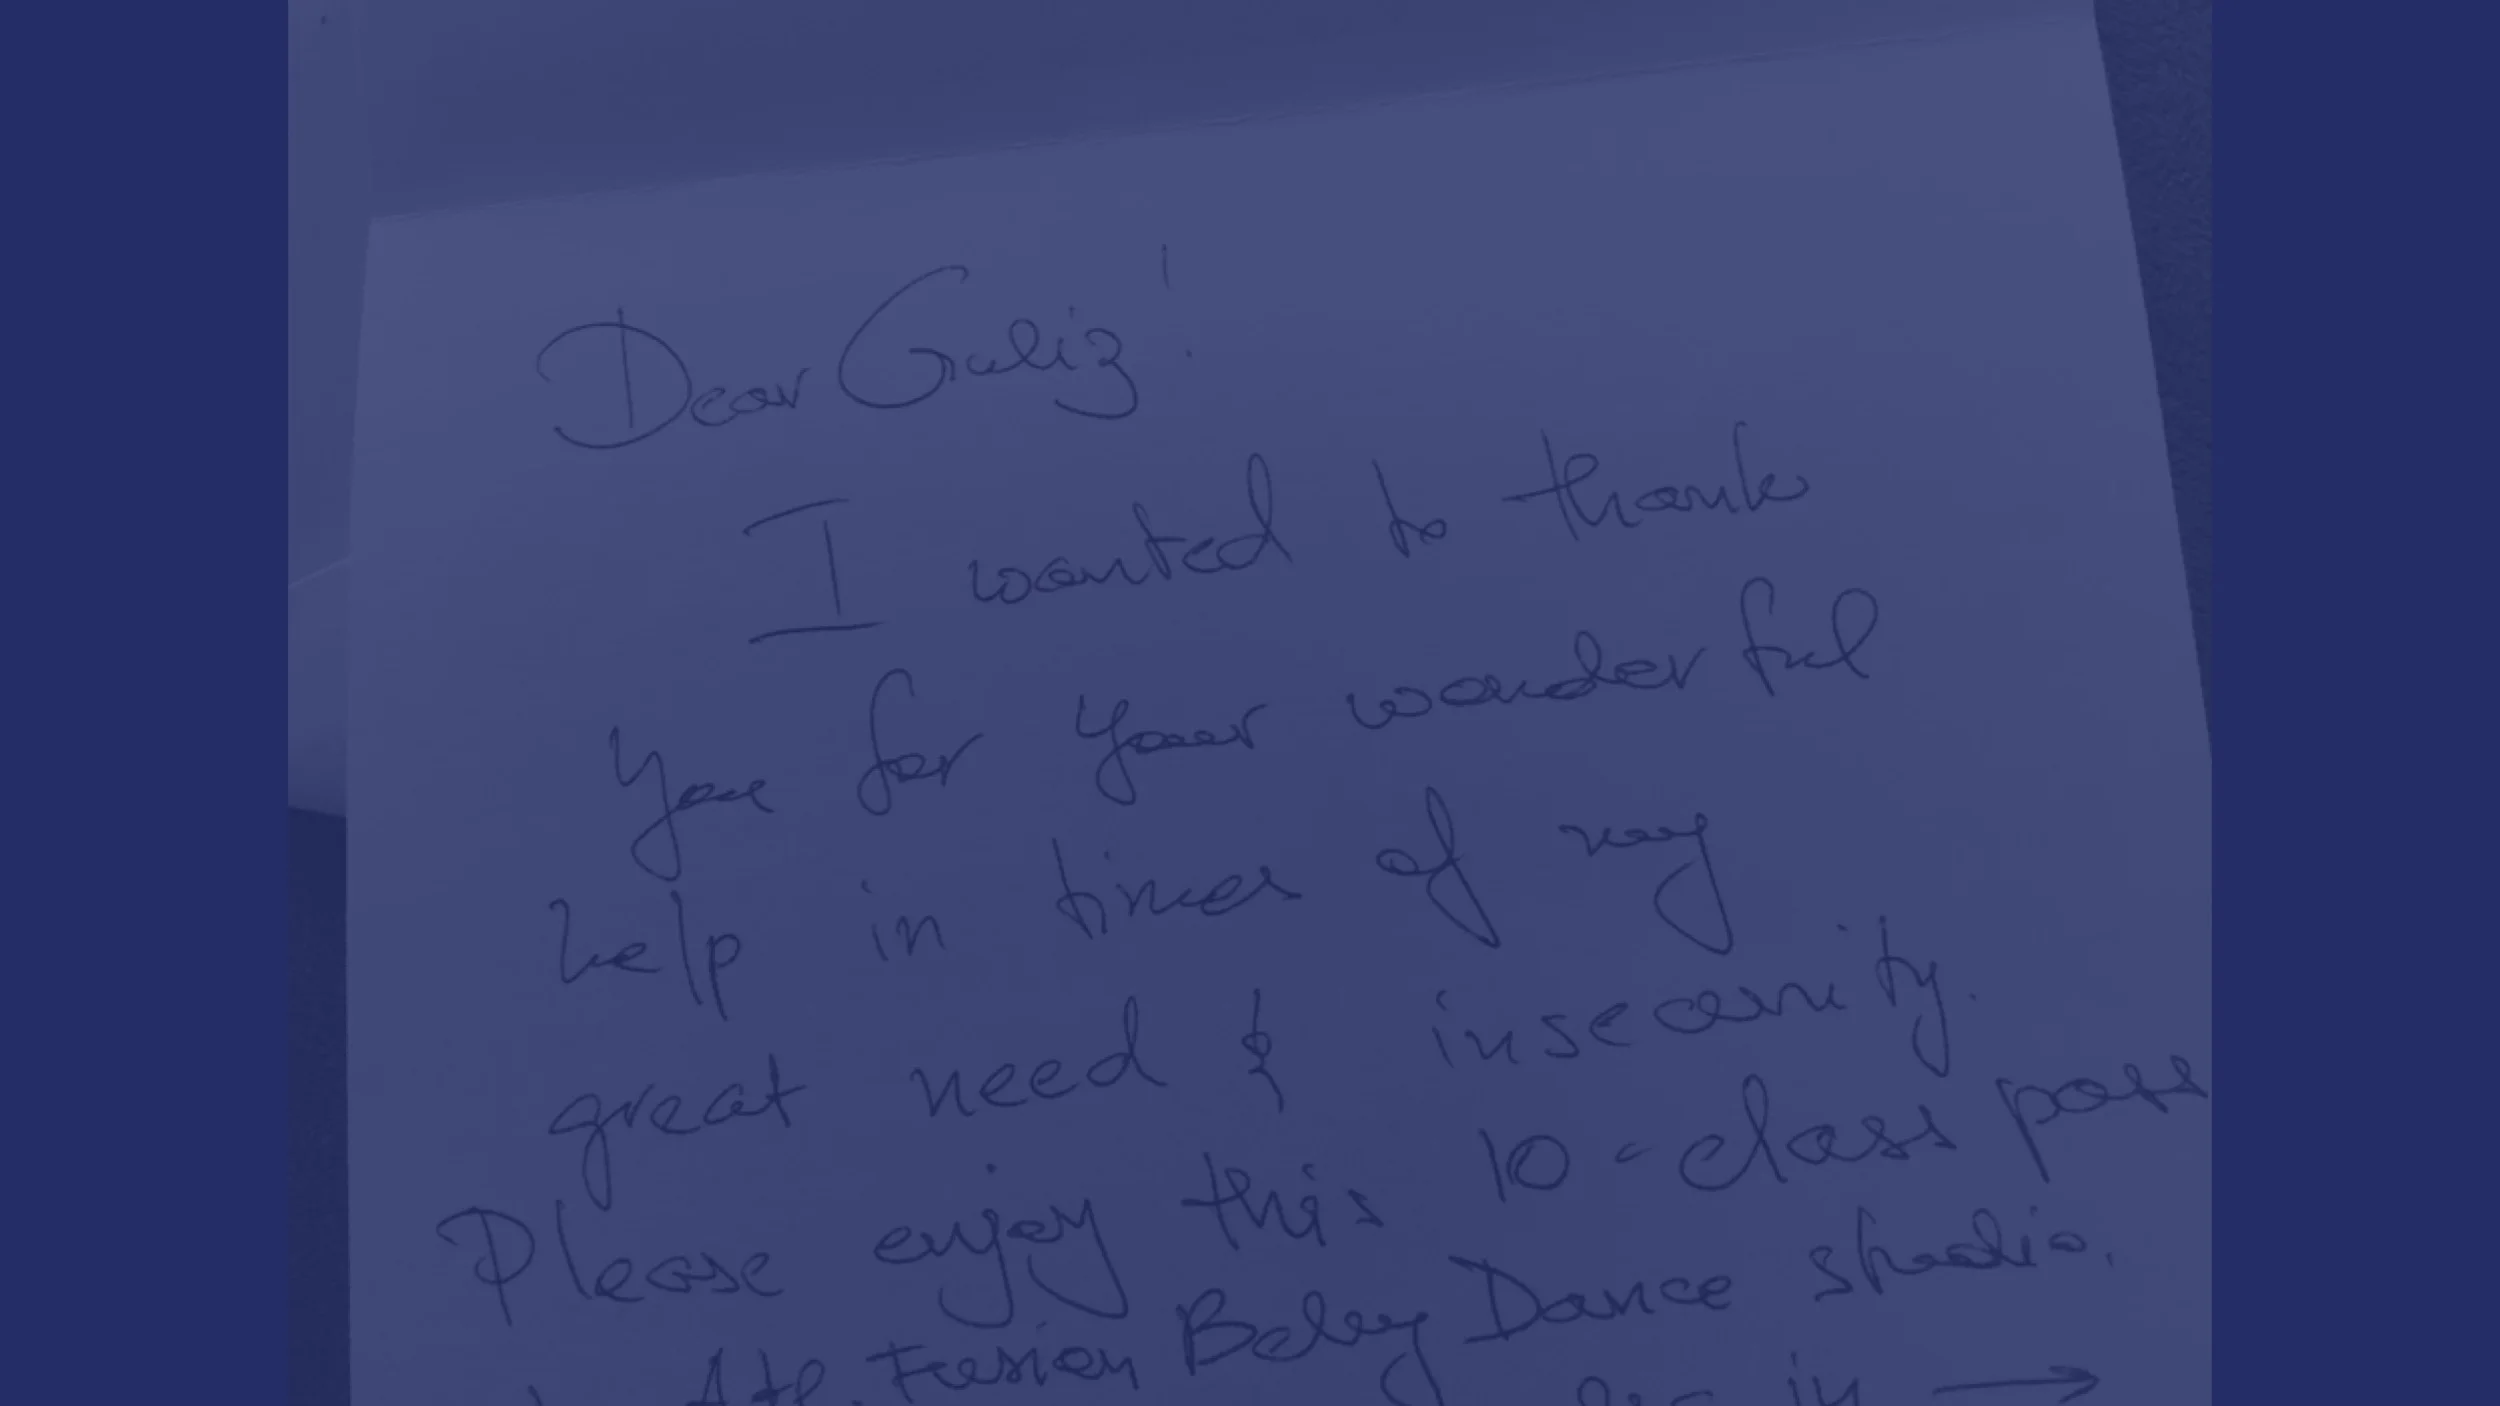 Dear Guliz!
I wanted to thank
you for your wonderful
help in times of my
great need & insecurity.
Please enjoy this 10-class pass
Atl. Fusion Belly Dance studio.
in →